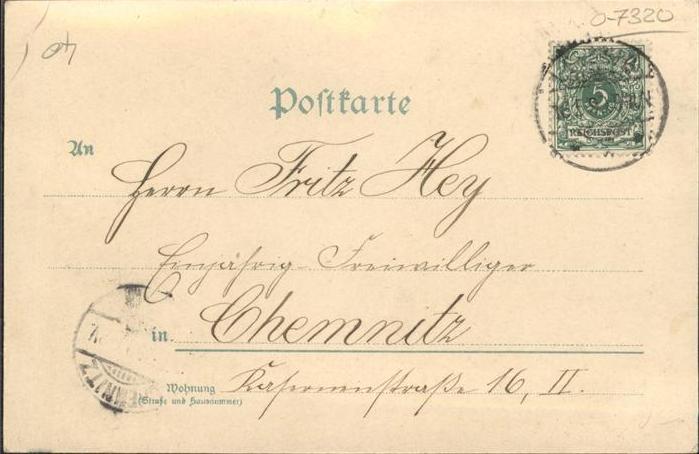 40
0-7320
5
REICHSPOST
Postkarte
An
Herrn Fritz Hey
Einjährig-Freiwilliger
in Chemnitz
Wohnung
(Straße und Hausnummer)
Kasernenstraße 16, II.
CHEMNITZ